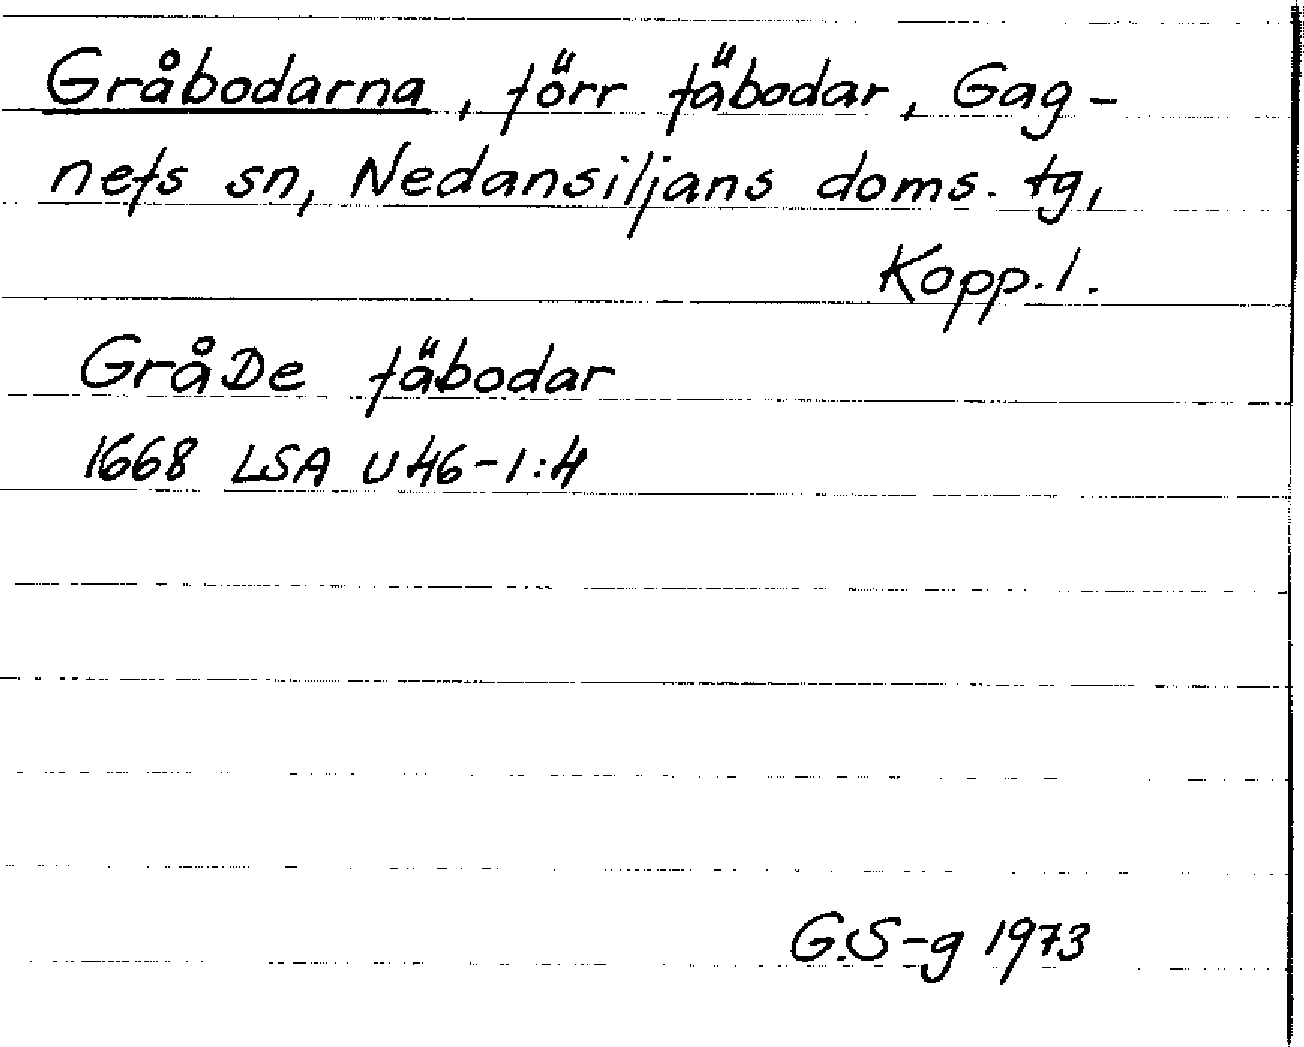 Gråbodarna, förr fäbodar, Gag-
nefs sn, Nedansiljans doms. tg,
Kopp. l.
GråDe fäbodar
1668 LSA U46-1:4
G.S-g 1973